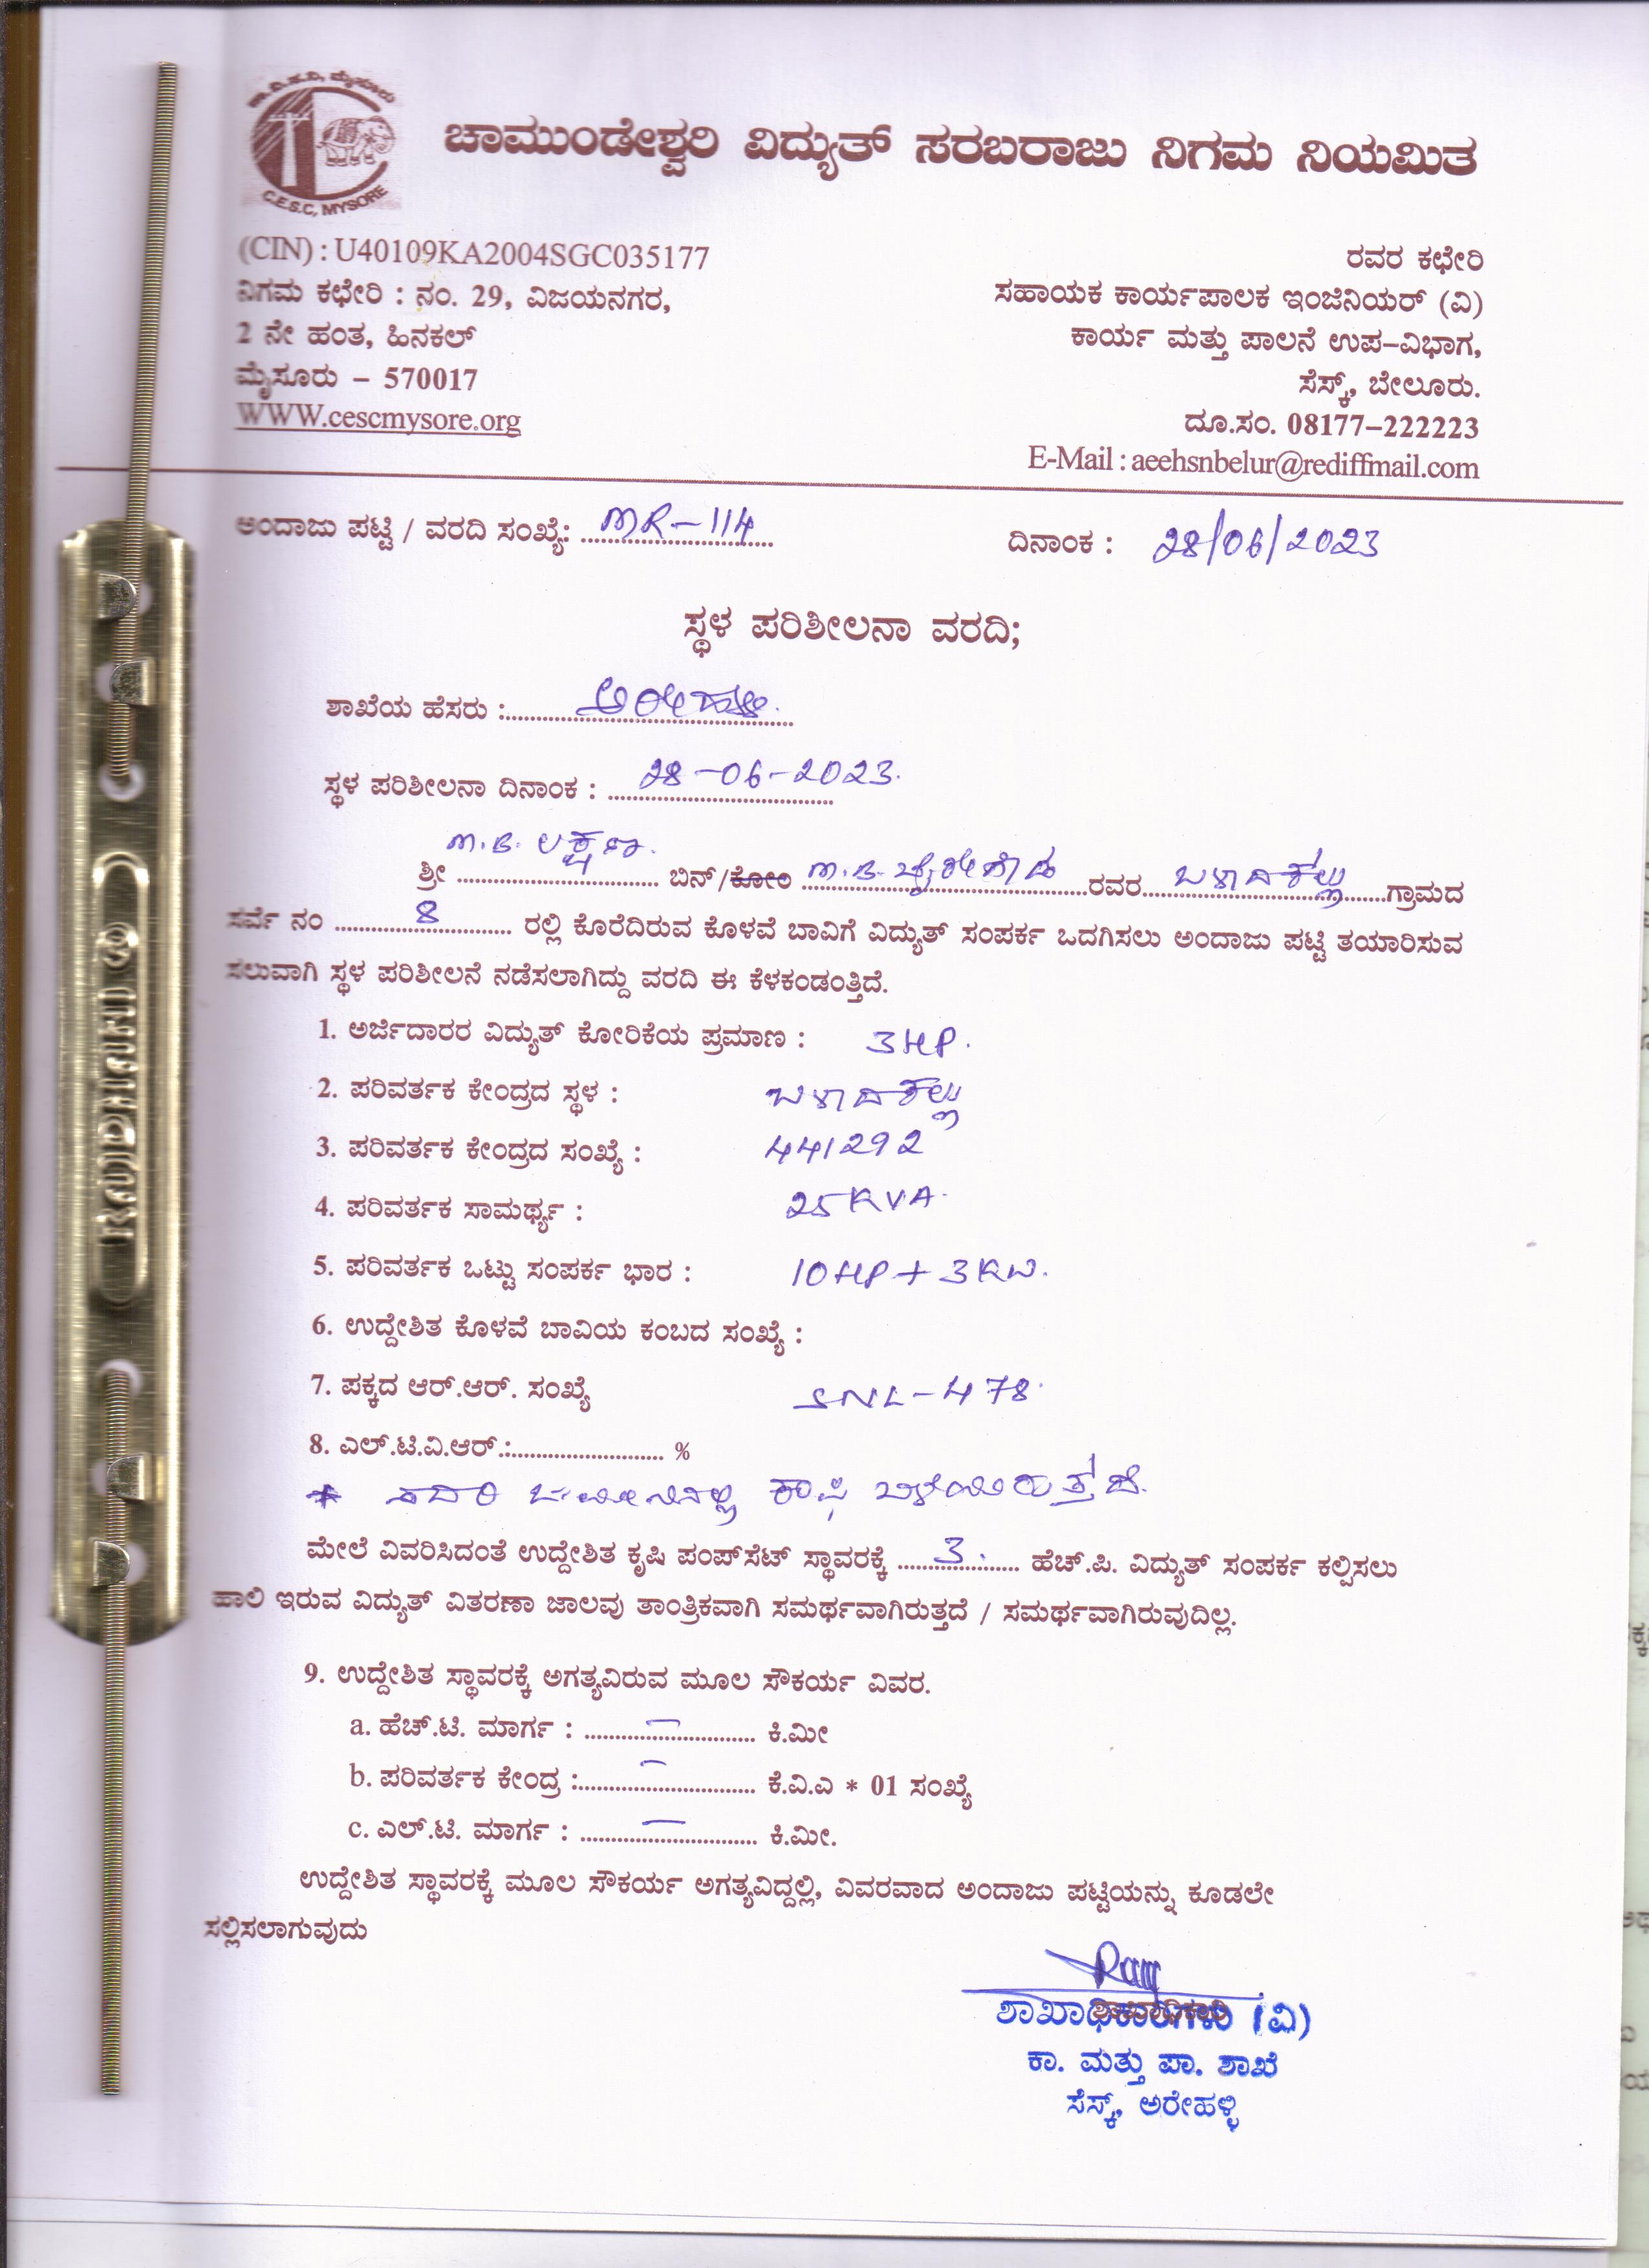 ಕಾ.ವಿ.ಸ.ನಿ, ಮೈಸೂರು
C.E.S.C, MYSORE
ಚಾಮುಂಡೇಶ್ವರಿ ವಿದ್ಯುತ್ ಸರಬರಾಜು ನಿಗಮ ನಿಯಮಿತ
(CIN) : U40109KA2004SGC035177
ನಿಗಮ ಕಛೇರಿ : ನಂ. 29, ವಿಜಯನಗರ,
2 ನೇ ಹಂತ, ಹಿನಕಲ್
ಮೈಸೂರು – 570017
WWW.cescmysore.org
ರವರ ಕಛೇರಿ
ಸಹಾಯಕ ಕಾರ್ಯಪಾಲಕ ಇಂಜಿನಿಯರ್ (ವಿ)
ಕಾರ್ಯ ಮತ್ತು ಪಾಲನೆ ಉಪ-ವಿಭಾಗ,
ಸೆಸ್ಕ್, ಬೇಲೂರು.
ದೂ.ಸಂ. 08177-222223
E-Mail : aeehsnbelur@rediffmail.com
ಅಂದಾಜು ಪಟ್ಟಿ / ವರದಿ ಸಂಖ್ಯೆ: MR-114 ದಿನಾಂಕ : 28/06/2023
ಸ್ಥಳ ಪರಿಶೀಲನಾ ವರದಿ;
ಶಾಖೆಯ ಹೆಸರು : ಅರೇಹಳ್ಳಿ.
ಸ್ಥಳ ಪರಿಶೀಲನಾ ದಿನಾಂಕ : 28-06-2023.
ಶ್ರೀ M.B. ಲಕ್ಷ್ಮಣ. ಬಿನ್/ಕೋಂ M.B. ಬೈರೇಗೌಡ ರವರ ಗ್ರಾಮದ
ಸರ್ವೆ ನಂ 8 ರಲ್ಲಿ ಕೊರೆದಿರುವ ಕೊಳವೆ ಬಾವಿಗೆ ವಿದ್ಯುತ್ ಸಂಪರ್ಕ ಒದಗಿಸಲು ಅಂದಾಜು ಪಟ್ಟಿ ತಯಾರಿಸುವ
ಸಲುವಾಗಿ ಸ್ಥಳ ಪರಿಶೀಲನೆ ನಡೆಸಲಾಗಿದ್ದು ವರದಿ ಈ ಕೆಳಕಂಡಂತ್ತಿದೆ.
1. ಅರ್ಜಿದಾರರ ವಿದ್ಯುತ್ ಕೋರಿಕೆಯ ಪ್ರಮಾಣ : 3HP.
2. ಪರಿವರ್ತಕ ಕೇಂದ್ರದ ಸ್ಥಳ :
3. ಪರಿವರ್ತಕ ಕೇಂದ್ರದ ಸಂಖ್ಯೆ : 441292
4. ಪರಿವರ್ತಕ ಸಾಮರ್ಥ್ಯ : 25KVA.
5. ಪರಿವರ್ತಕ ಒಟ್ಟು ಸಂಪರ್ಕ ಭಾರ : 10HP + 3KW.
6. ಉದ್ದೇಶಿತ ಕೊಳವೆ ಬಾವಿಯ ಕಂಬದ ಸಂಖ್ಯೆ :
7. ಪಕ್ಕದ ಆರ್.ಆರ್. ಸಂಖ್ಯೆ SNL-478.
8. ಎಲ್.ಟಿ.ವಿ.ಆರ್.: %
* ಸದರಿ ಜಮೀನಿನಲ್ಲಿ ಕಾಫಿ ಬೆಳೆಯಿರುತ್ತದೆ.
ಮೇಲೆ ವಿವರಿಸಿದಂತೆ ಉದ್ದೇಶಿತ ಕೃಷಿ ಪಂಪ್‌ಸೆಟ್ ಸ್ಥಾವರಕ್ಕೆ 3. ಹೆಚ್.ಪಿ. ವಿದ್ಯುತ್ ಸಂಪರ್ಕ ಕಲ್ಪಿಸಲು
ಹಾಲಿ ಇರುವ ವಿದ್ಯುತ್ ವಿತರಣಾ ಜಾಲವು ತಾಂತ್ರಿಕವಾಗಿ ಸಮರ್ಥವಾಗಿರುತ್ತದೆ / ಸಮರ್ಥವಾಗಿರುವುದಿಲ್ಲ.
9. ಉದ್ದೇಶಿತ ಸ್ಥಾವರಕ್ಕೆ ಅಗತ್ಯವಿರುವ ಮೂಲ ಸೌಕರ್ಯ ವಿವರ.
a. ಹೆಚ್.ಟಿ. ಮಾರ್ಗ : — ಕಿ.ಮೀ
b. ಪರಿವರ್ತಕ ಕೇಂದ್ರ : — ಕೆ.ವಿ.ಎ * 01 ಸಂಖ್ಯೆ
c. ಎಲ್.ಟಿ. ಮಾರ್ಗ : — ಕಿ.ಮೀ.
ಉದ್ದೇಶಿತ ಸ್ಥಾವರಕ್ಕೆ ಮೂಲ ಸೌಕರ್ಯ ಅಗತ್ಯವಿದ್ದಲ್ಲಿ, ವಿವರವಾದ ಅಂದಾಜು ಪಟ್ಟಿಯನ್ನು ಕೂಡಲೇ
ಸಲ್ಲಿಸಲಾಗುವುದು
ಶಾಖಾಧಿಕಾರಿಗಳು (ವಿ)
ಕಾ. ಮತ್ತು ಪಾ. ಶಾಖೆ
ಸೆಸ್ಕ್, ಅರೇಹಳ್ಳಿ